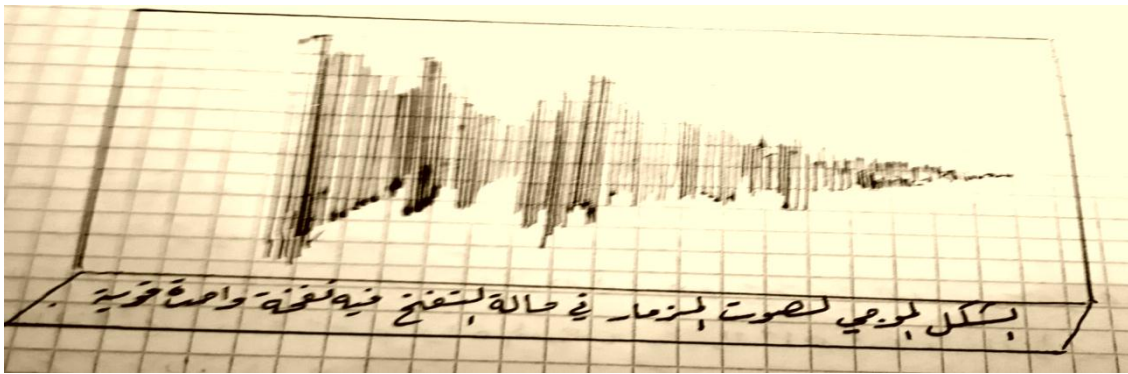 الشكل الموجي لصوت المزمار في حالة النفخ فيه نفخة واحدة قوية .